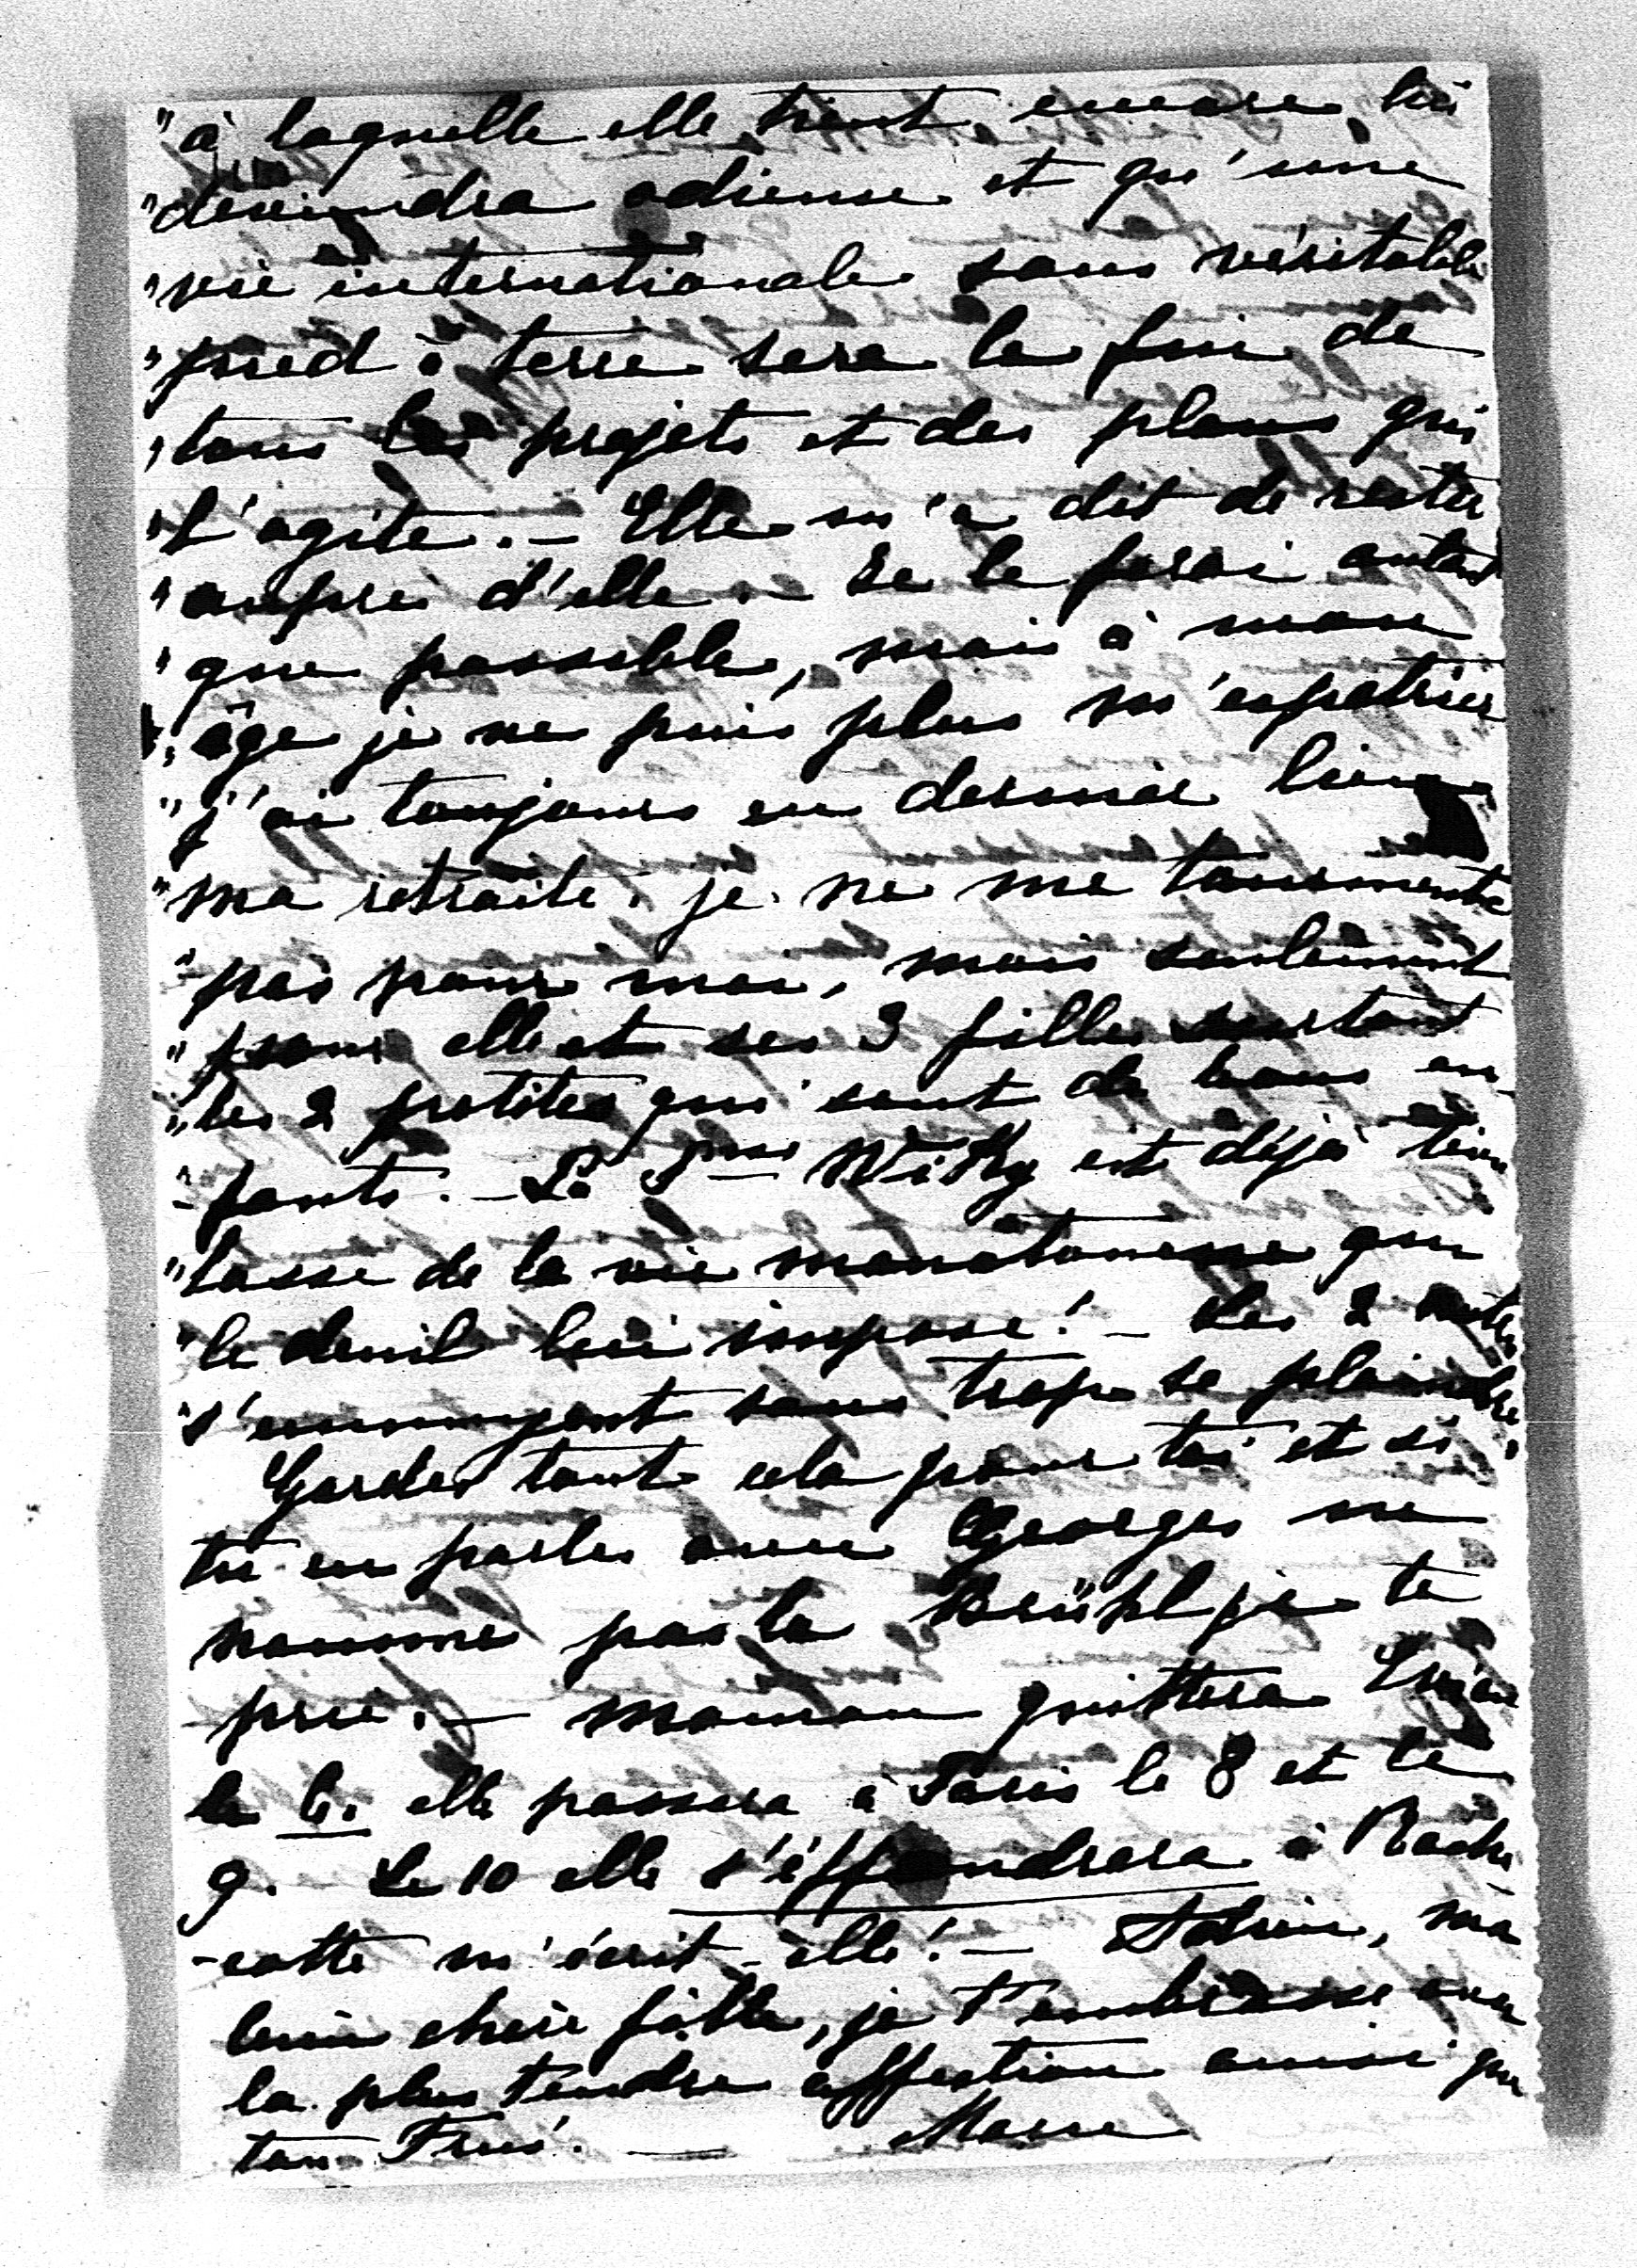 "à laquelle elle tient encore, lui
"deviendra odieuse et qu'une
"vie internationale sans véritable
"pied à terre sera la fin de
"tous les projets et des plans qui
"l'agite. — Elle m'a dit de rester
"auprès d'elle. — Je le ferai autant
"que possible, mais à mon
"âge je ne puis plus m'expatrier
"j'ai toujours en dernier lieu
"ma retraite. je ne me tourmente
"pas pour moi, mais seulement
"pour elle et ses 3 filles surtout
"les 2 petites qui sont de bons en-
"fants. — La Psse Wiky est déjà bien
"lasse de la vie monotone que
"le deuil lui impose! — Les 2 autres
"s'ennuyent sans trop se plaindre.
Gardes tout cela pour toi et si
tu en parles avec Georges ne
nomme pas la Brühl je te
prie. — Maman quittera
le 6. elle passera à Paris le 8 et le
9. Le 10 elle s'éffondrera à Roche
-cotte m'écrit-elle! — Adieu, ma
bien chère fille, je t'embrasse avec
la plus tendre affection ainsi que
ton Fries. —